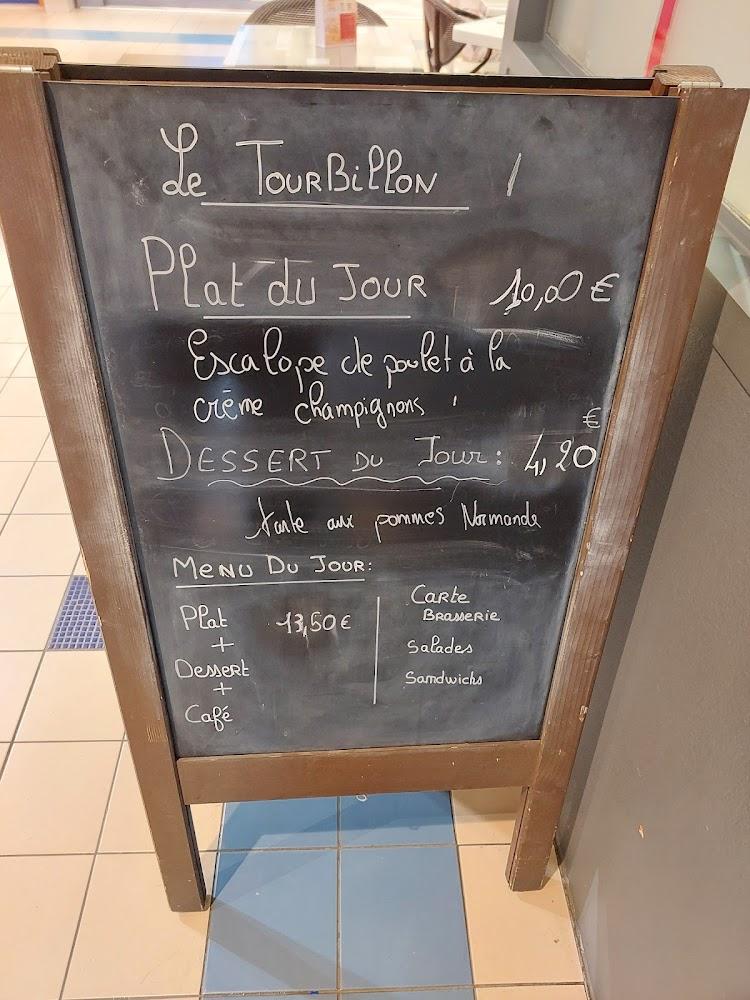 Le TourBillon !
Plat du Jour 10,00 €
Escalope de poulet à la
crème champignons !
Dessert du Jour : 4,20 €
tarte aux pommes Normande
Menu Du Jour :
Plat 13,50 €
+
Dessert
+
Café
Carte
Brasserie
Salades
Sandwichs